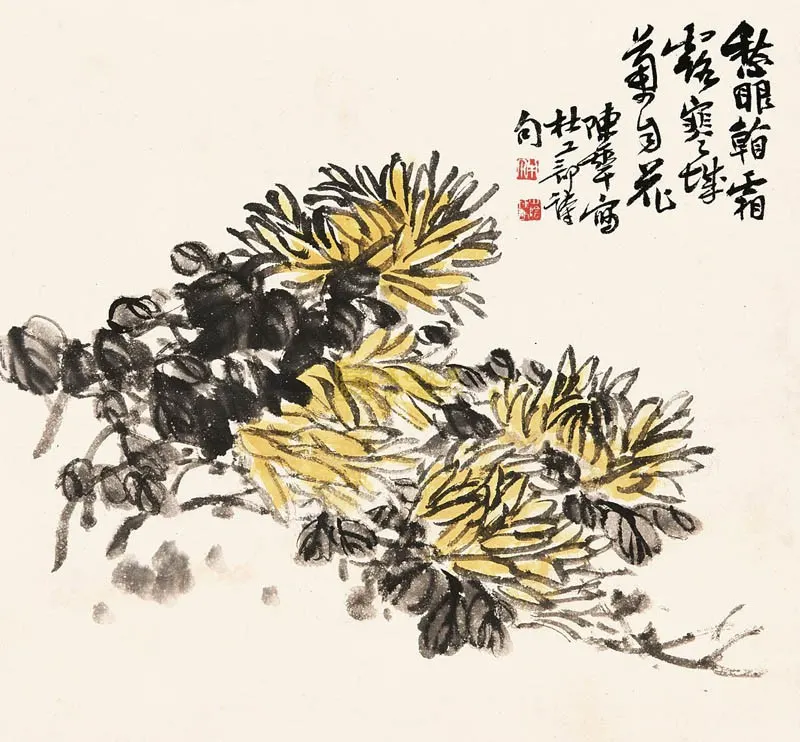 愁眼看霜
露寒城
菊自花
陳年寫
杜工部詩
句